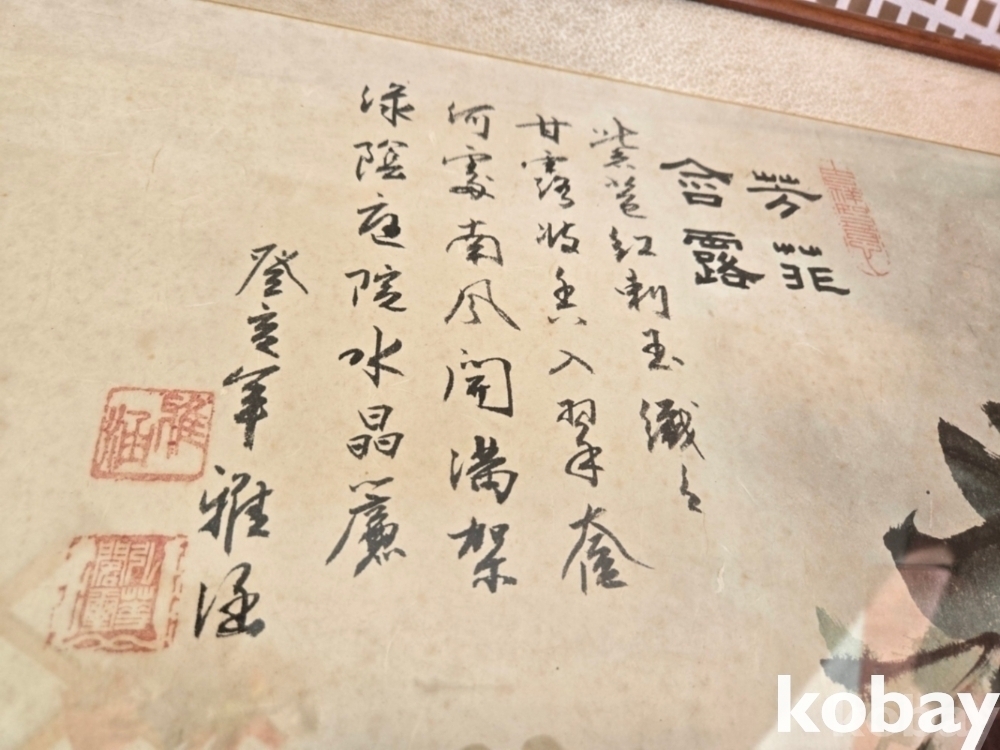 芳菲
含露
紫红刺玉纖纖
甘露香入翠奩
何處南風開滿架
緑陰庭院水晶簾
癸亥年雅涵
雅涵
kobay